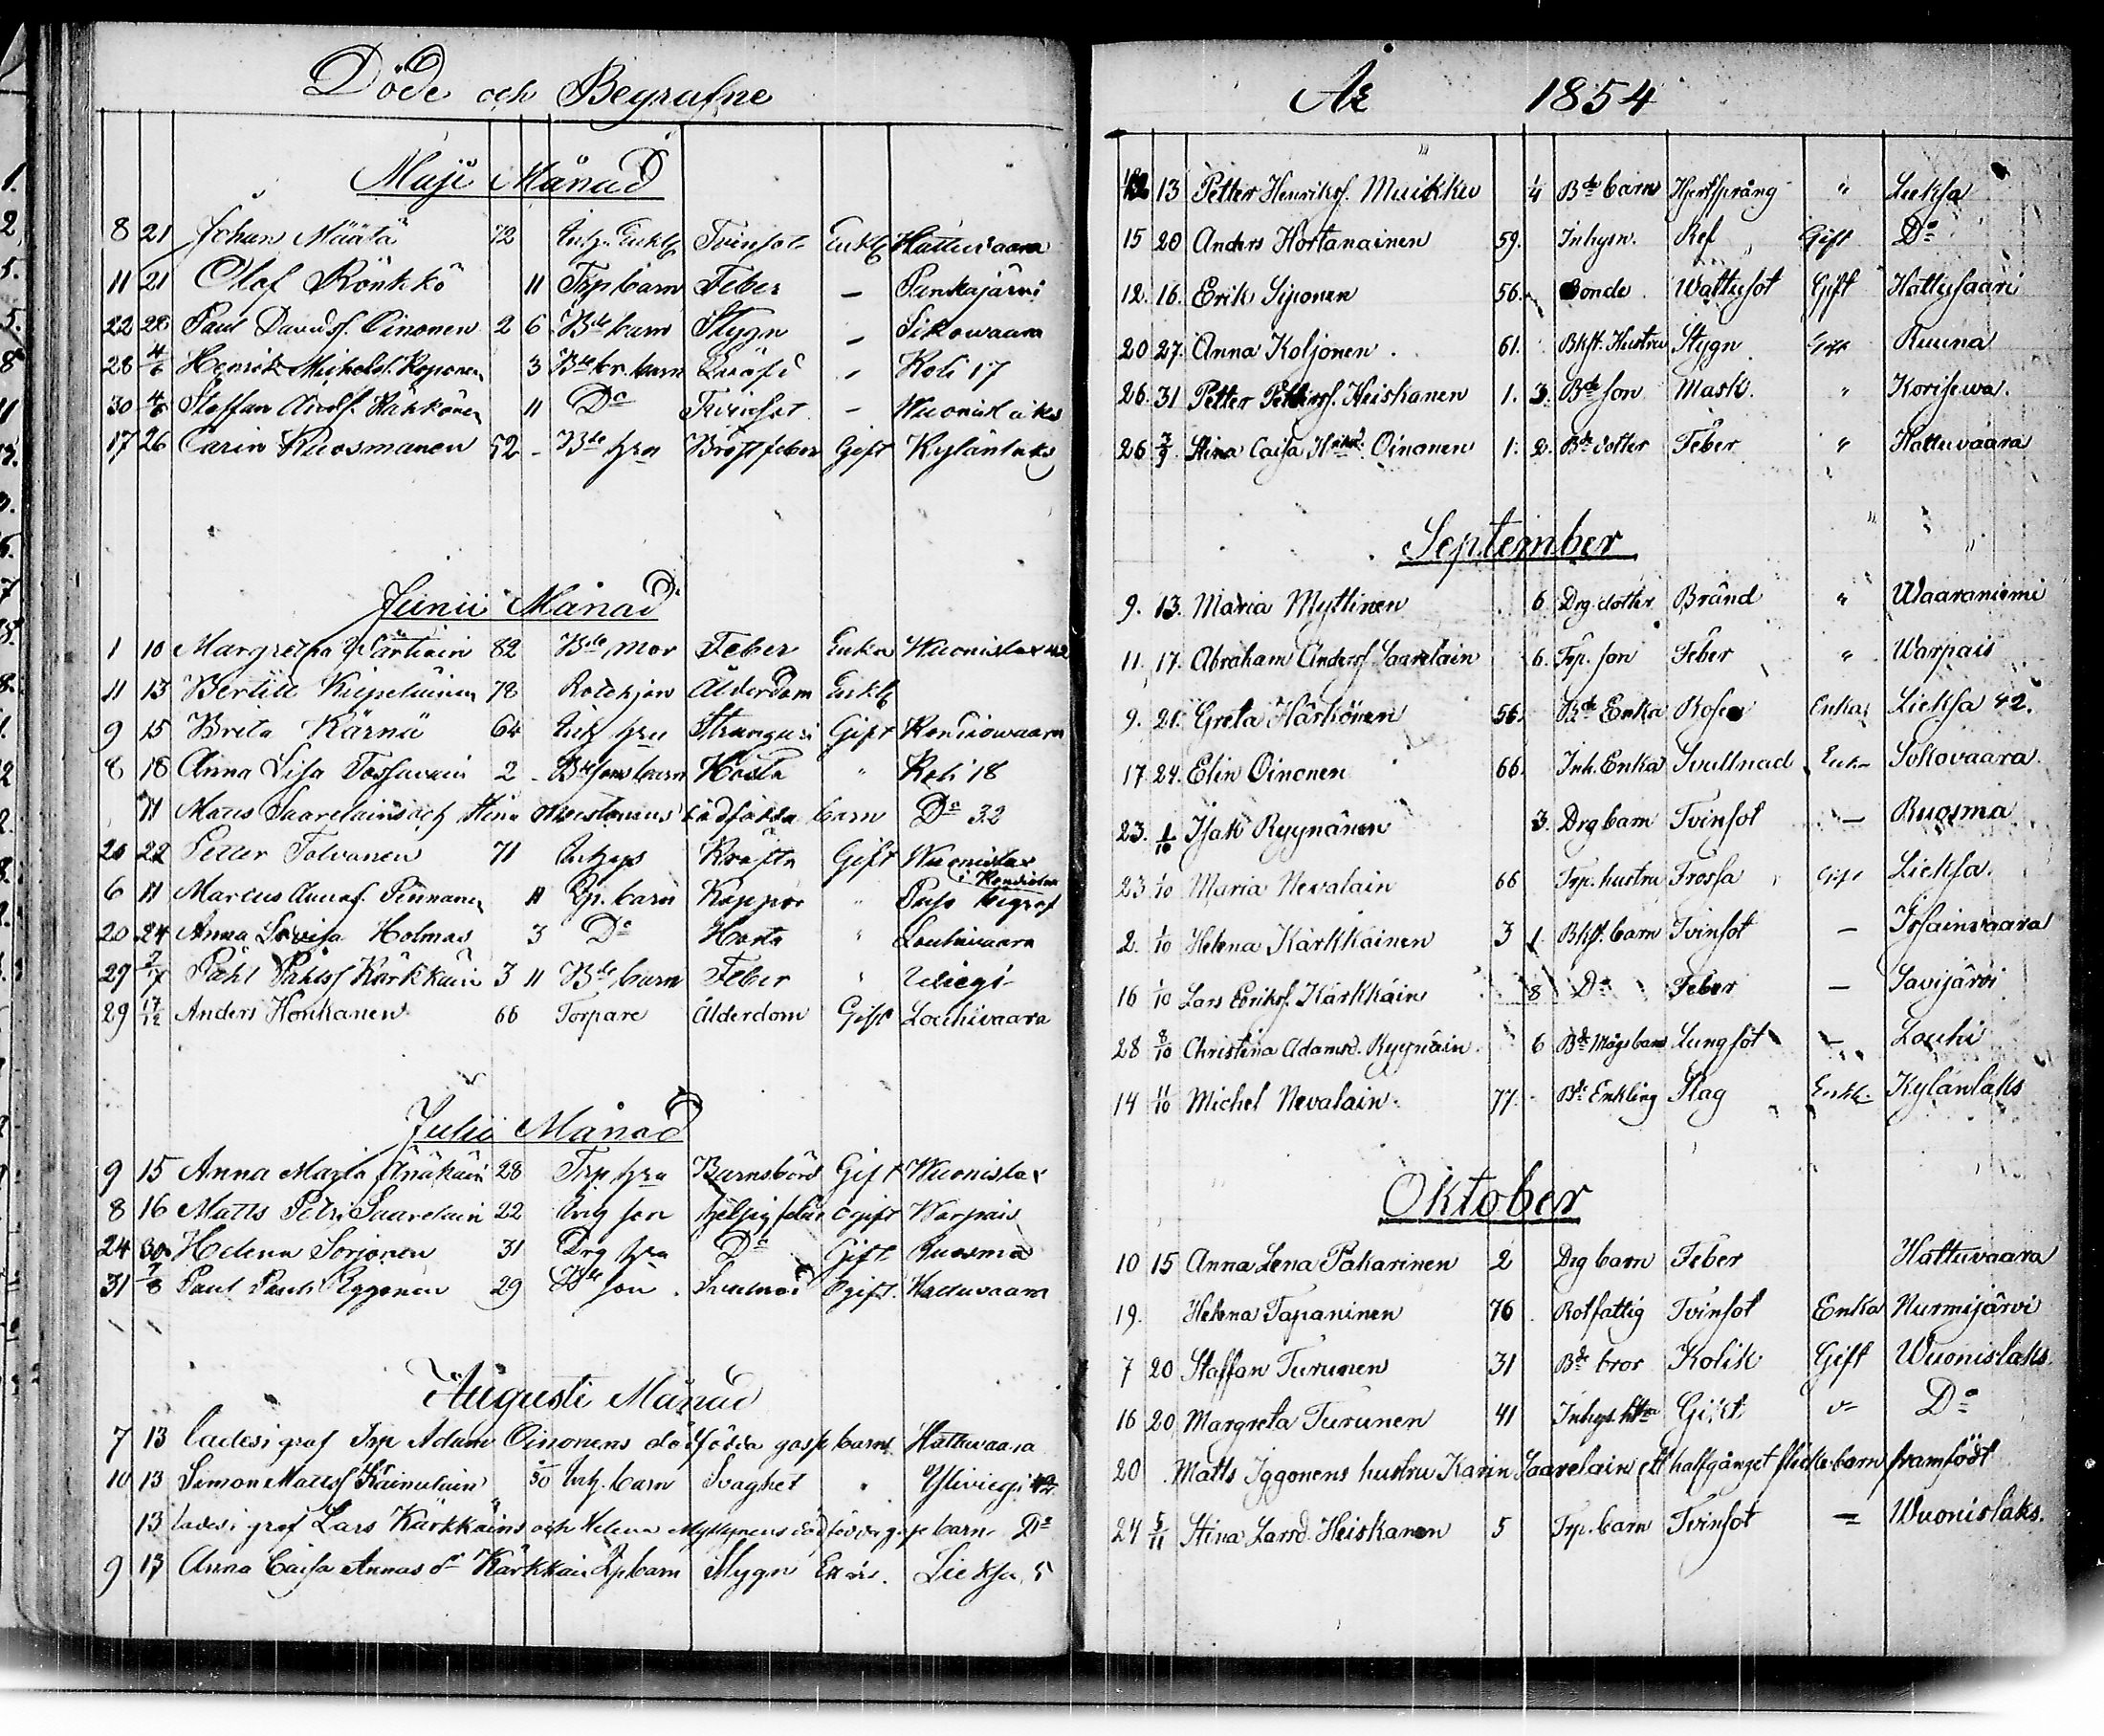 Döde och Begrafne
Maji Månad
8 21 Johan Määtä 72 Inh. Enkl Tvinsot Enkl Hattuvaara
11 21 Olof Rönkkö 11 Trp barn Feber — Pankajärvi
22 28 Paul Davidsf. Oinonen 2 6 Bde barn Stygn — Sikowaara
28 4/6 Henrik Michelsf. Koponen 3 Bde br. barn - Koli 17
30 4/6 Staffan Andf. 11 Do Tvinsot - Wuonislaks
17 26 Carin Ruosmanen 52 - Bde hru Bröstfeber Gift Kylänlaks
Junii Månad
1 10 Margretha 82 Bde mor Feber Enka Wuonislax
11 13 Bertill Kiipeläinen 78 Rotehjon Ålderdom Enkl
9 15 Brita Kärnä 64 Inh hru Gift
8 18 Anna Lisa Tossavain 2 - Bde sons barn Hosta " Koli 18
11 Matts Saarelains och Stina dödfödda barn Do 32
20 22 Petter Tolvanen 71 Inhys Kräfta Gift Wuonislax
6 11 Marcus Pinnanen 11 Trp. barn Koppor " begrof
20 24 Anna Lovisa Holmas 3 Do Hosta " Louhivaara
27 2/7 Påhl Påhlsf Kärkkäin 3 11 Bde barn Feber " Wiegi
29 17/12 Anders Honkanen 66 Torpare Ålderdom Gift Louhivaara
Julii Månad
9 15 Anna Maria 28 Trp hru Barnsbörd Gift Wuonislax
8 16 Matts Petri Saarelain 22 Inh son ogift Warpais
24 30 Helena Sorjonen 31 Drg hru Do Gift Ruosma
31 7/8 Paul Iggonen 29 Bde son Svulnad Ogift. Hattuvaara
Augusti Månad
7 13 lades i graf Trp Adam Oinonens dödfödda gosse barn Hattuvaara
10 13 Simon Mattsf Kainulain 30 Inh. barn Svaghet " Yliviegi 42
13 lades i graf Lars Kärkkäins och Helena Myllynens dödfödda gosse barn Do
9 17 Anna Caisa Annas dr Kärkkäin Trp barn Stygn Lieksa 5
År 1854
12 13 Petter Henriksf. Muikku 4 Bde barn Hjertsprång " Lieksa
15 20 Anders Hortanainen 59. Inhysn. Ref Gift Do
12. 16. Erik Siponen 56. Bonde Wattusot Gift Hattusaari
20 27. Anna Koljonen. 61. Bkst. Hustru Stygn Gift Ruuna
26. 31 Petter Pettersf. Heiskanen 1. 3. Bde son Mask. " Korisewa.
26 3/9 Stina Caisa Oinonen 1. 2. Bde dotter Feber " Hattuvaara
September
9. 13. Maria Myttinen 6. Drg. dotter Bränd " Waaraniemi
11. 17. Abraham Andersf. Saarelain 6. Trp. son Feber " Warpais
9. 21. Greta Härkönen 56. Bde Enka Rosen Enka Lieksa 42.
17 24. Elin Oinonen 66. Inh. Enka Svullnad Enka Sokovaara.
23. 1/10 Isak Ryynänen 3. Drg barn Tvinsot — Ruosma
23 1/10 Maria Nevalain 66 Trp. hustru Frossa Gift Lieksa.
2. 1/10 Helena Kärkkäinen 3 1. Bkst. barn Tvinsot —
16 1/10 Lars Eriksf. Kärkkäin 8 Do Feber — Savijärvi
28 8/10 Christina Adamsd. Ryynäin. 6 Bde Mågs barn Lungsot — Louhi
14 11/10 Michel Nevalain. 77. Bde Enkling Slag Enkl. Kylänlaks
Oktober
10 15 Anna Lena Pakarinen 2 Drg barn Feber Hattuvaara
19. Helena Tapaninen 76 Rotfattig Tvinsot Enka Nurmijärvi
7 20 Staffan Turunen 31 Bde bror Kolik Gift Wuonislaks.
16 20 Margreta Turunen 41 Inhys. htru Gikt Do
20 . Matts Iggonens hustru Karin Saarelain ett halfgånget flicke barn framfödt
24 5/11 Stina Larsd. Heiskanen 5 Trp. barn Tvinsot = Wuonislaks.